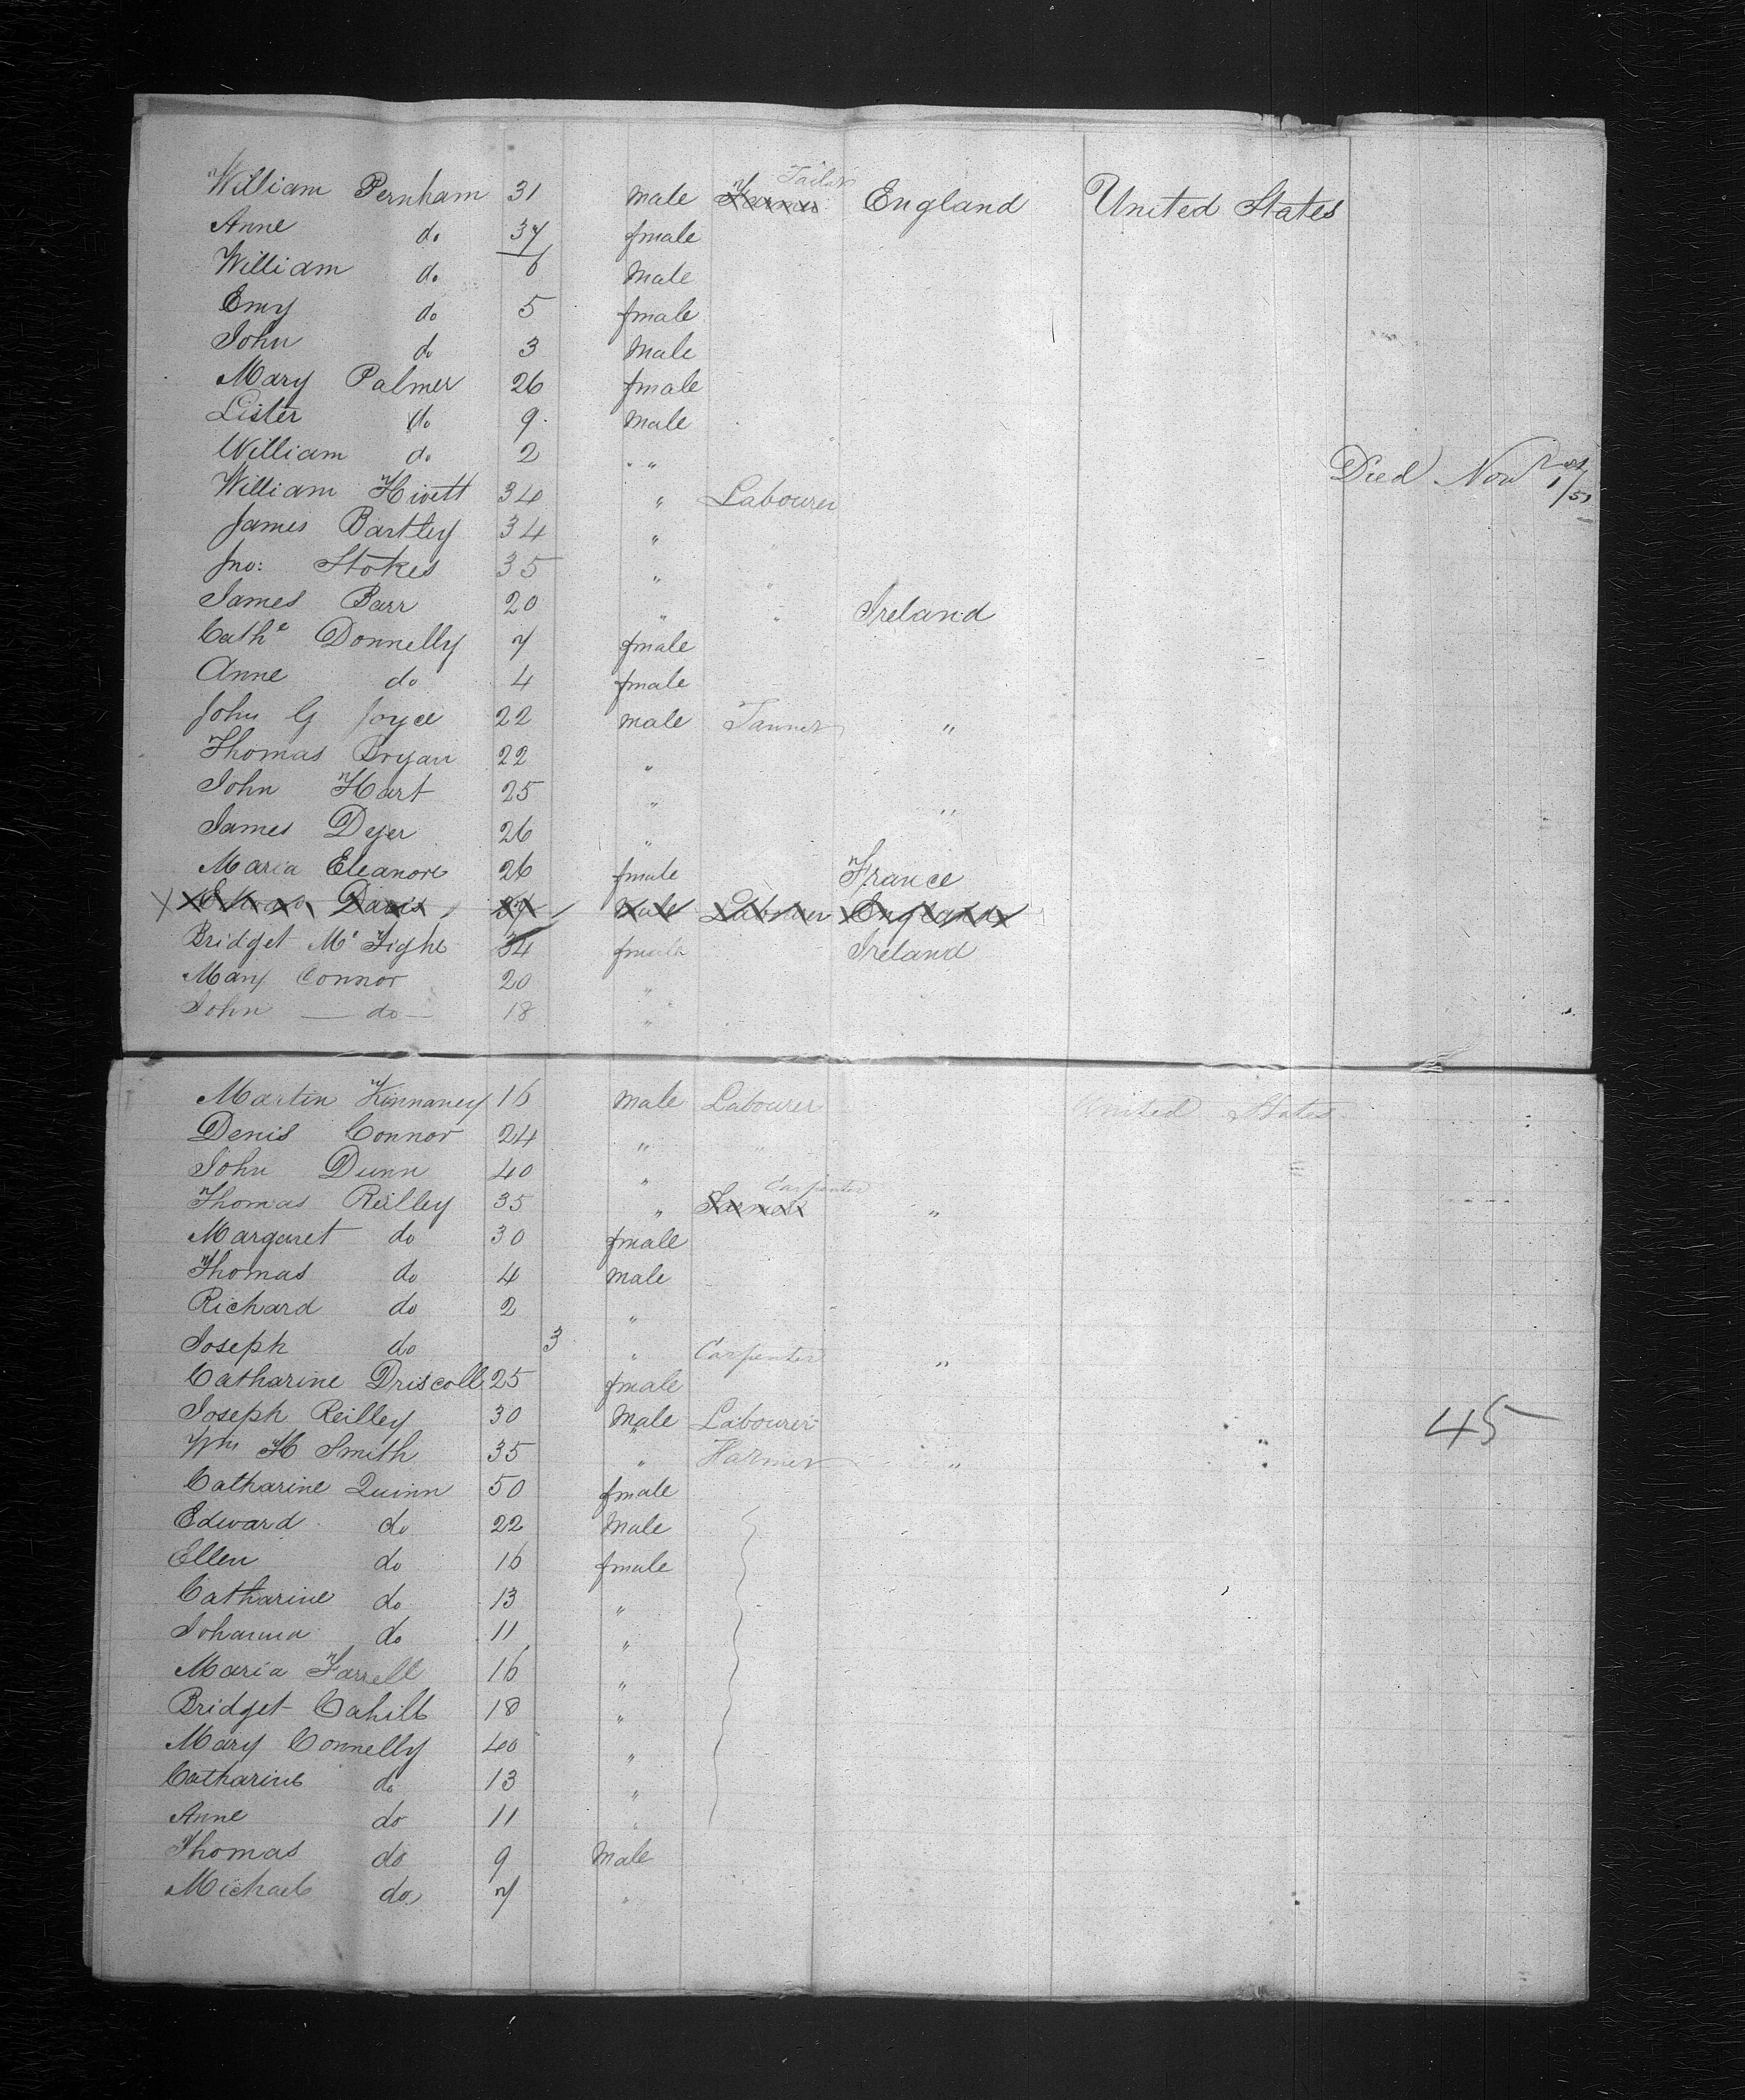 William Pernham 31 male Farmer Tailor England United States
Anne do 37 fmale
William do 6 Male
Emy do 5 fmale
John do 3 Male
Mary Palmer 26 fmale
Lister do 9 Male
William do 2 " Died Novr 1/51
William Hivett 34 " Labourer
James Bartley 34 " "
Jno: Stokes 35 " "
James Barr 20 " " Ireland
Cathe Donnelly 7 fmale
Anne do 4 fmale
John G Joyce 22 male Tanner "
Thomas Bryan 22 "
John Hart 25 " "
James Dyer 26 "
Maria Eleanore 26 fmale France
Davis 37 Male Labourer England
Bridget Mc Tighe 34 fmale Ireland
Mary Connor 20 "
John — do — 18 "
Martin Kinnaney 16 Male Labourer United States
Denis Connor 24 " "
John Dunn 40 "
Thomas Reilley 35 " Farmer Carpenter "
Margaret do 30 fmale
Thomas do 4 Male
Richard do 2 "
Joseph do 3 " Carpenter "
Catharine Driscoll 25 fmale
Joseph Reilley 30 Male Labourer 45
Wm H Smith 35 " Farmer "
Catharine Quinn 50 fmale
Edward do 22 Male
Ellen do 16 fmale
Catharine do 13 "
Johanna do 11 "
Maria Farrell 16 "
Bridget Cahill 18 "
Mary Connelly 40 "
Catharine do 13 "
Anne do 11 "
Thomas do 9 Male
Michael do 7 "